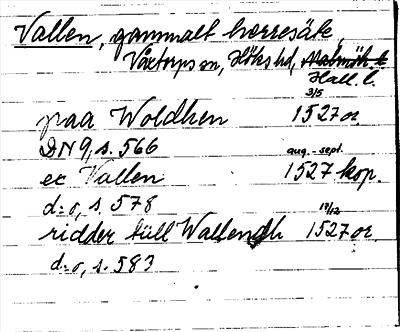 Vallen, gammalt herresäte,
Våxtorps sn, Höks hd, Malmöh. l.
Hall. l.
3/5
paa Woldhen 1527 or.
DN 9, s. 566
aug.-sept.
ec Vallen 1527 kop.
d:o, s. 578
17/12
ridder till Wallendh 1527 or.
d:o, s. 583